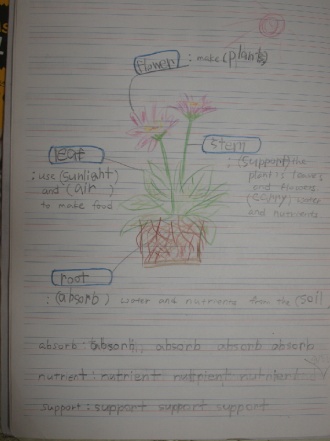 flower : make (plants)
leaf
: use (sunlight)
and (air)
to make food
stem
: (support) the
plant's flowers
and flowers
(carry) water
and nutrients
root
: (absorb) water and nutrients from the (soil)
absorb : absorb, absorb absorb absorb
nutrient : nutrient nutrient nutrient
support : support support support